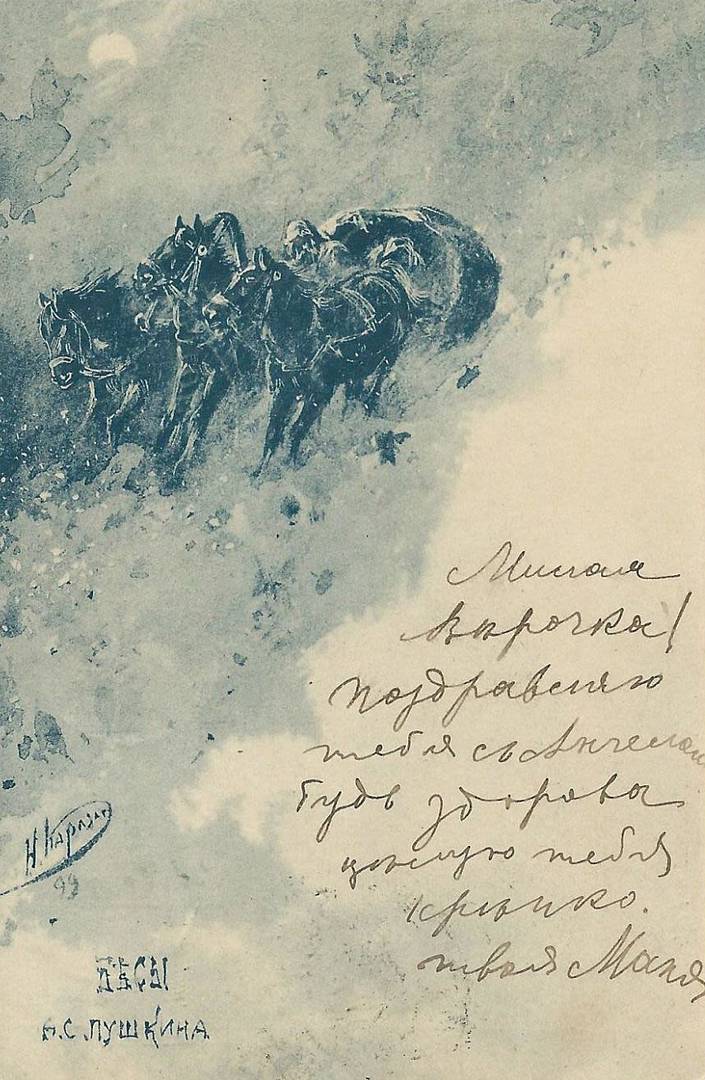 Милая
Вѣрочка!
поздравляю
тебя съ Ангеломъ
будь здорова
цѣлую тебя
крѣпко.
твоя Маня
Н. Каразин
99
БѢСЫ
А. С. ПУШКИНА